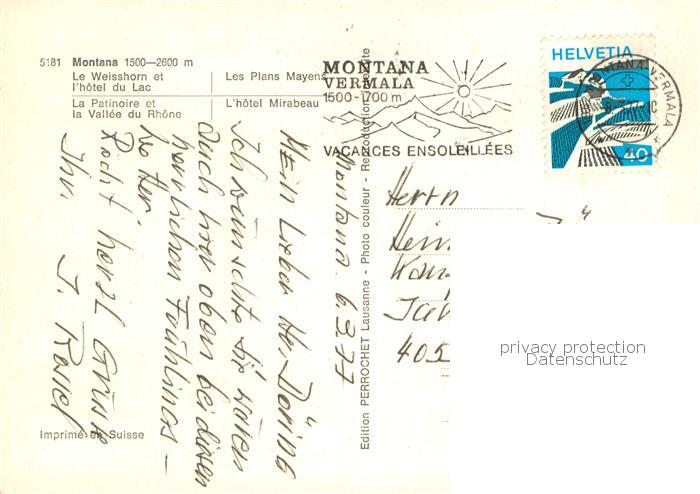 5181 Montana 1500—2600 m
Le Weisshorn et
l'hôtel du Lac
Les Plans Mayens
La Patinoire et
la Vallée du Rhône
L'hôtel Mirabeau
MONTANA
VERMALA
1500-1700 m
VACANCES ENSOLEILLÉES
HELVETIA
MONTANA-VERMALA
40
Edition PERROCHET Lausanne - Photo couleur - Reproduction interdite
Montana. 6 3 77
Mein lieber Hr. Döring
Ich wünschte Sie wären
auch hier oben bei diesem
herrlichen Frühlings-
wetter.
Recht herzl Grüsse
Ihr.
Herrn
Hein
405
Imprimé en Suisse
privacy protection
Datenschutz